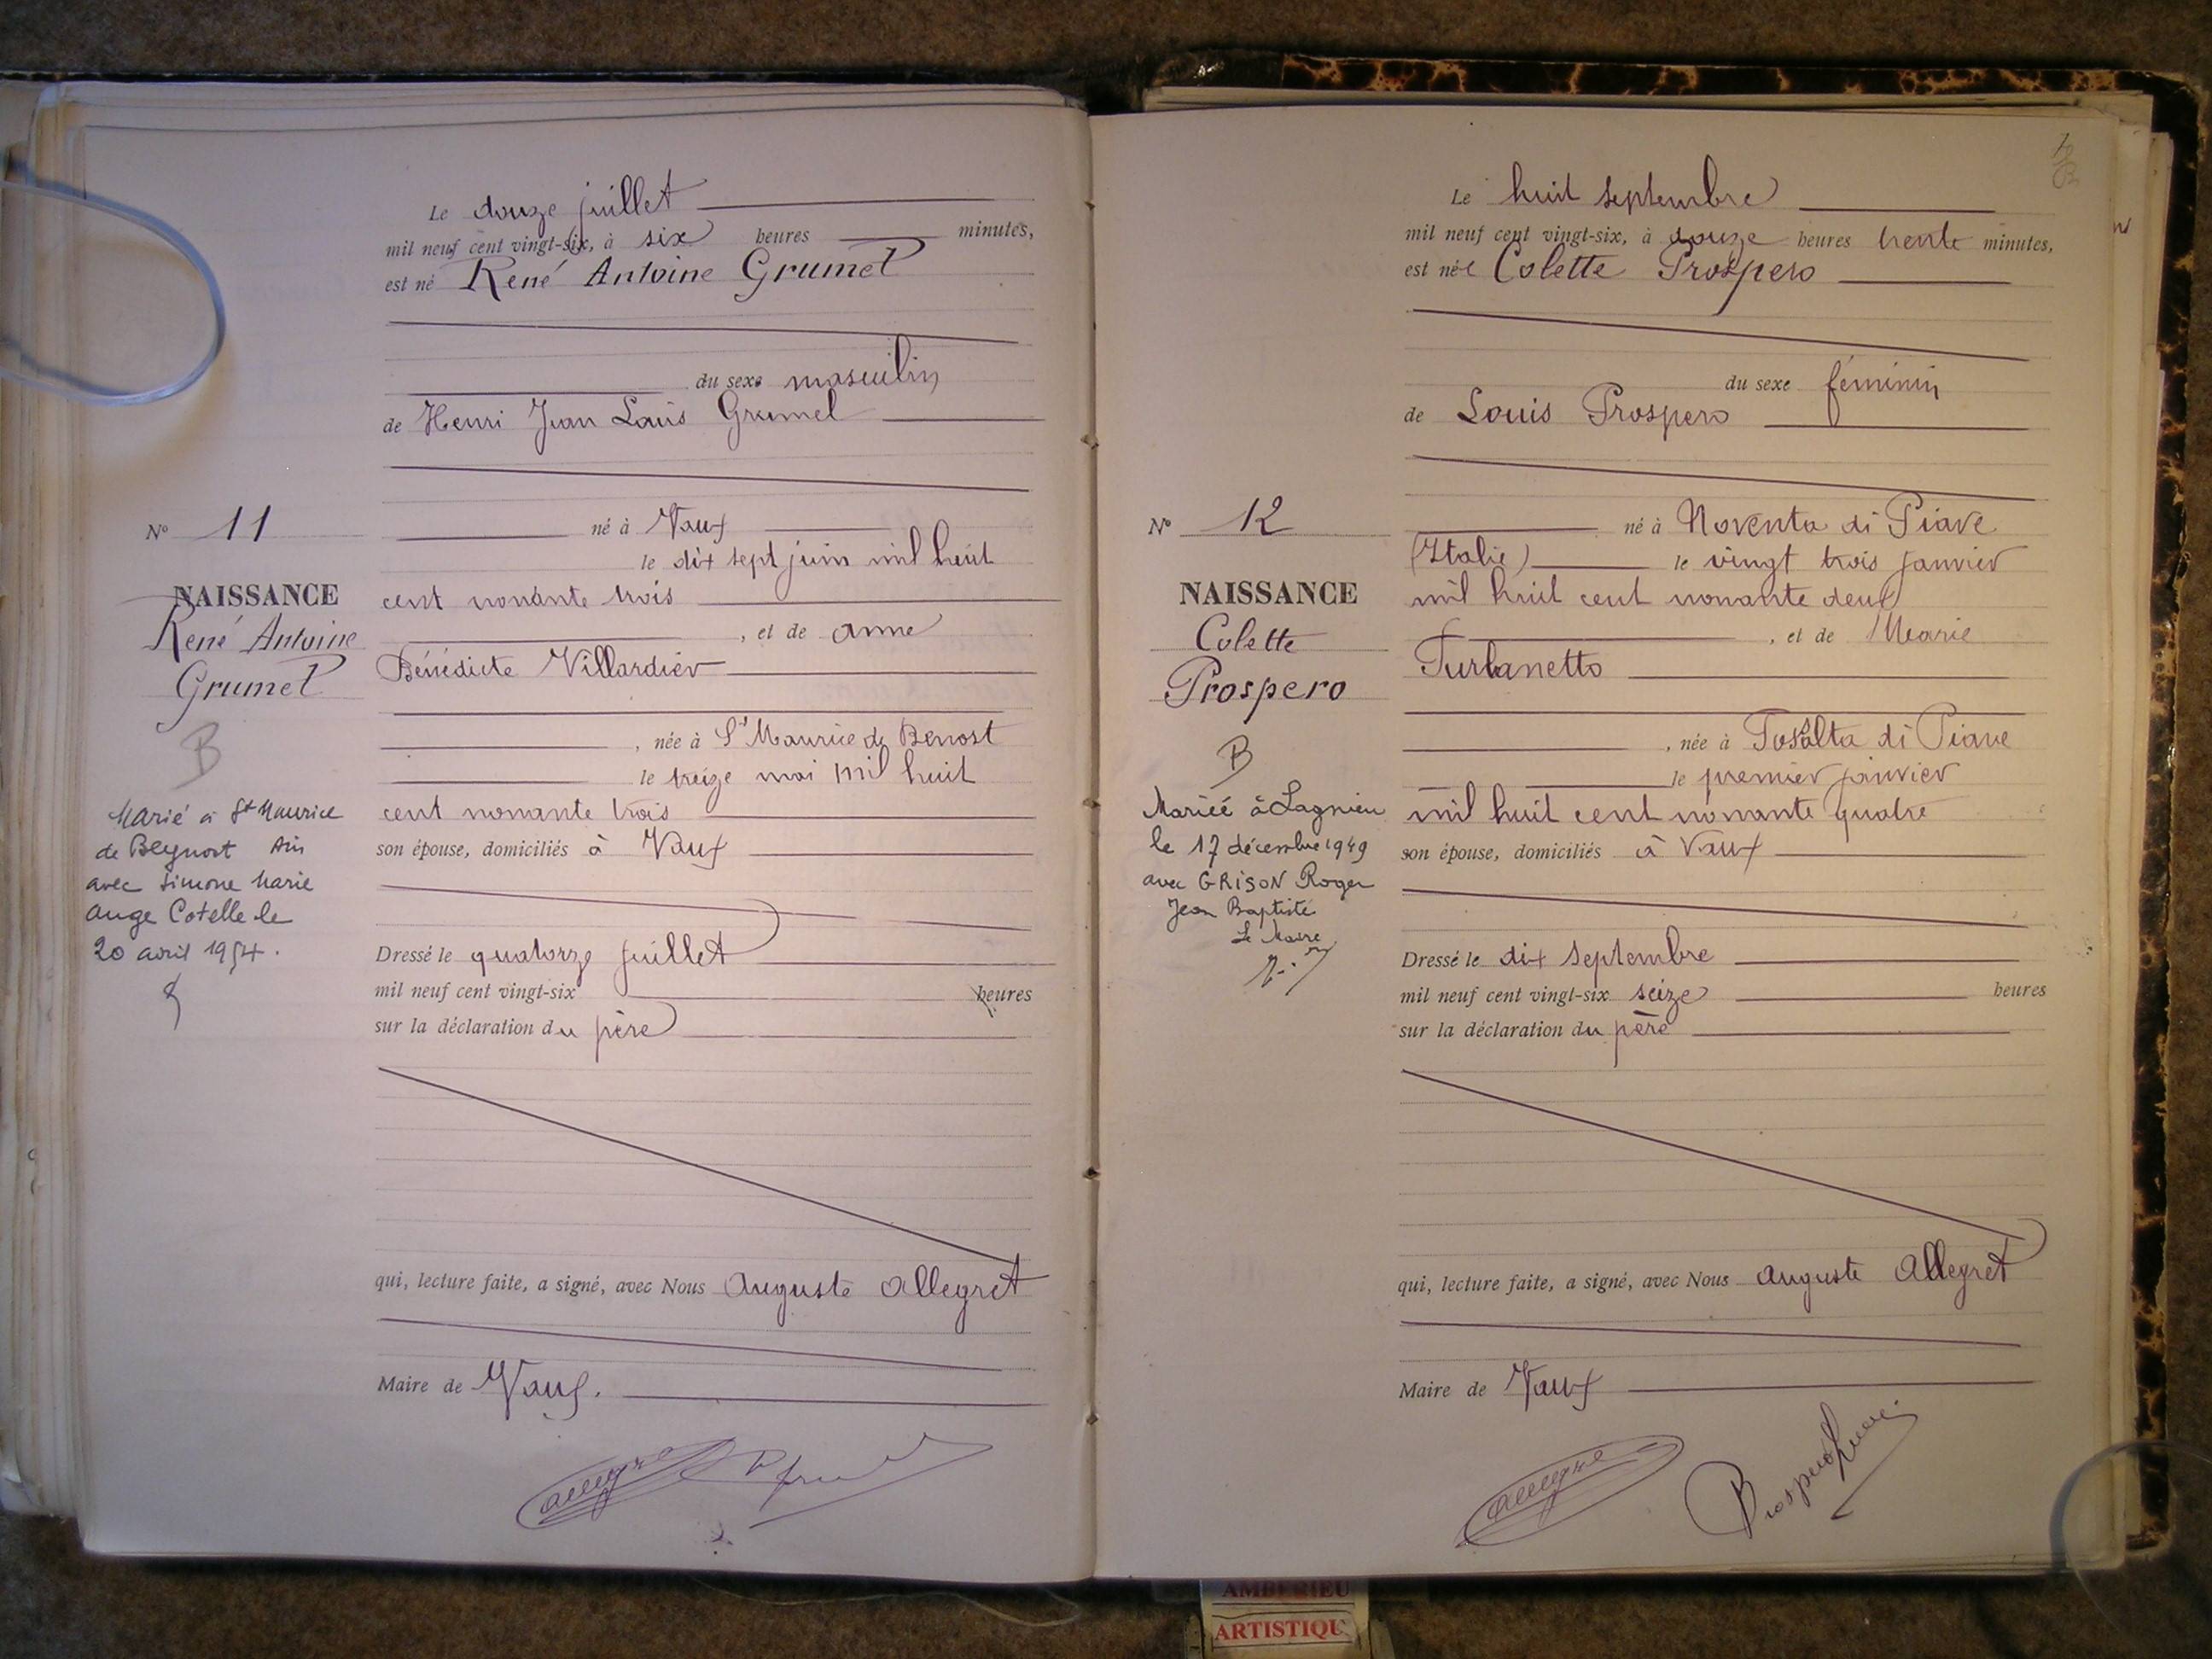 Le douze juillet
mil neuf cent vingt-six, à six heures minutes,
est né René Antoine Grumet
du sexe masculin
de Henri Jean Louis Grumel
né à Vaux
le dix sept juin mil huit
cent nonante trois
, et de Anne
Bénédicte Villardier
, née à St Maurice de Benost
le treize mai mil huit
cent nonante trois
son épouse, domiciliés à Vaux
Dressé le quatorze juillet
mil neuf cent vingt-six heures
sur la déclaration du père
qui, lecture faite, a signé, avec Nous Auguste Allegret
Maire de Vaux.
Nº 11
NAISSANCE
René Antoine
Grumet
B
Marié à St Maurice
de Beynost Ain
avec Simone Marie
Ange Cotelle le
20 avril 1954.
Le huit septembre
mil neuf cent vingt-six, à douze heures trente minutes,
est née Colette Prospero
du sexe féminin
de Louis Prospero
né à Noventa di Piave
(Italie) le vingt trois janvier
mil huit cent nonante deux
, et de Marie
Furlanetto
, née à Fosalta di Piave
le premier janvier
mil huit cent nonante quatre
son épouse, domiciliés à Vaux
Dressé le dix septembre
mil neuf cent vingt-six seize heures
sur la déclaration du père
qui, lecture faite, a signé, avec Nous Auguste Allegret
Maire de Vaux
Nº 12
NAISSANCE
Colette
Prospero
B
Mariée à Lagnieu
le 17 décembre 1949
avec GRISON Roger
Jean Baptiste
Le Maire
AMBERIEU
ARTISTIQU